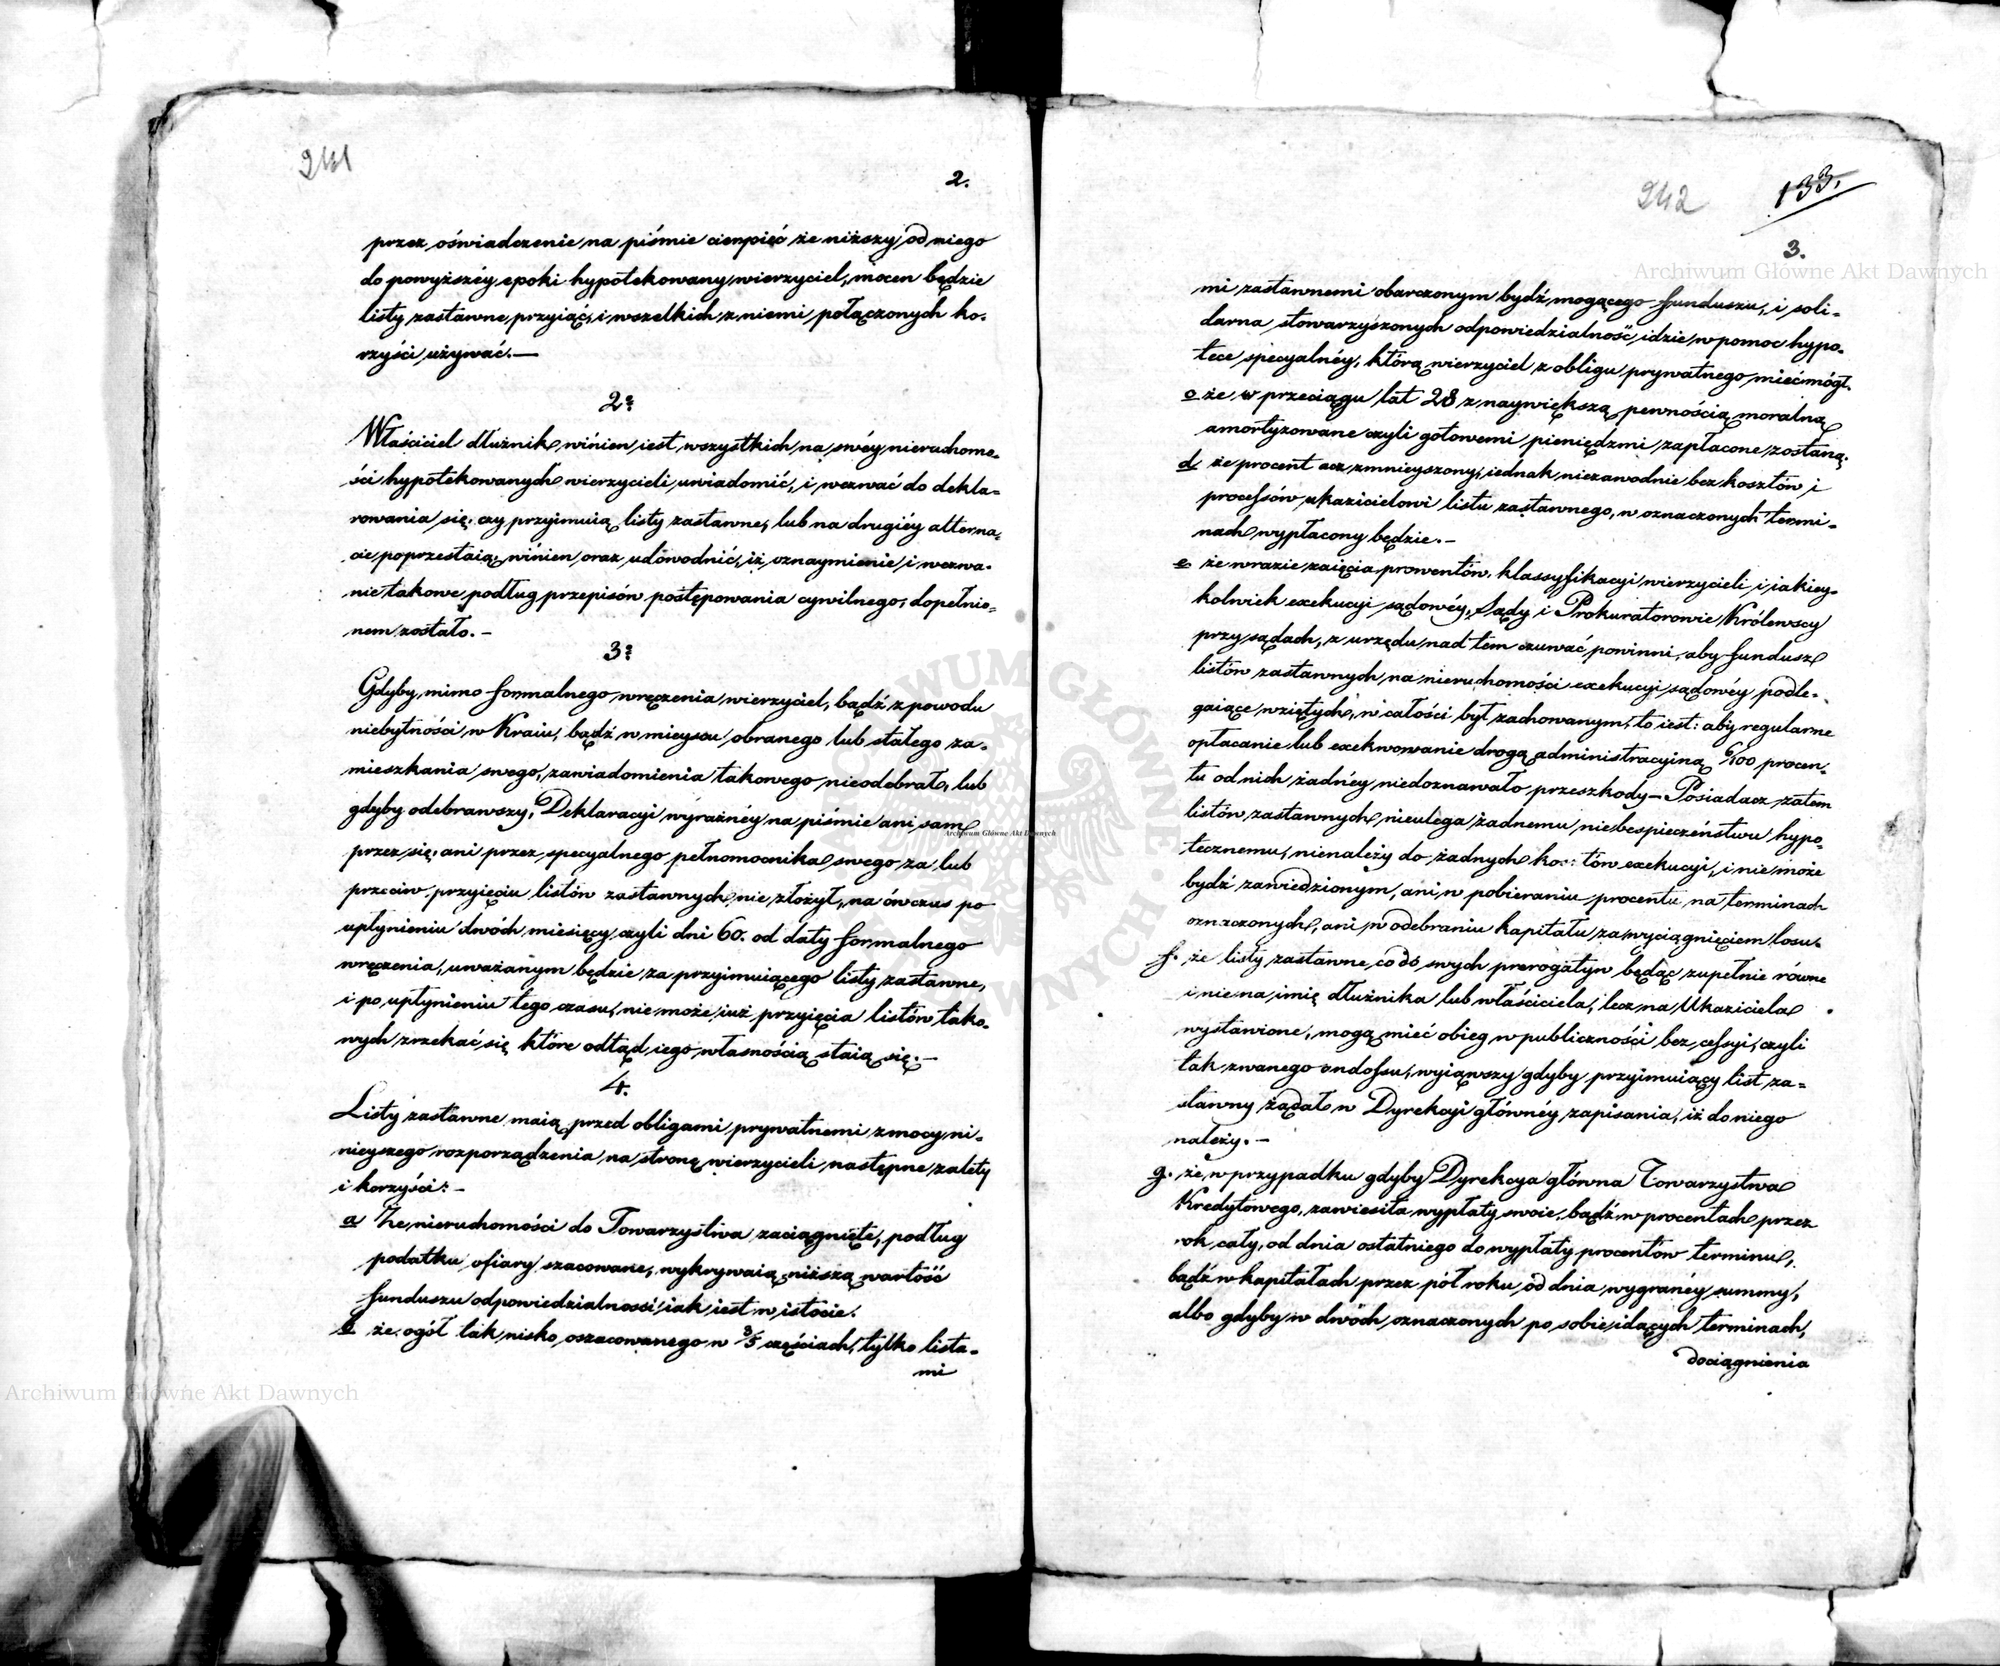 241
2.
przez oświadczenie na piśmie cierpieć że niższy od niego
do powyższéy epoki hypotekowany wierzyciel, mocen będzie
listy zastawne przyiąć, i wszelkich z niemi połączonych ko-
rzyści używać.—
2º
Właściciel dłużnik winien iest wszystkich na swéy nieruchomo-
ści hypotekowanych wierzycieli uwiadomić, i wezwać do dekla-
rowania się, czy przyimuią listy zastawne, lub na drugiéy alterna-
cie poprzestaią, winien oraz udowodnić, iż oznaymienie i wezwa-
nie takowe podług przepisów postępowania cywilnego, dopełnio-
nem zostało.—
3º
Gdyby mimo formalnego wręczenia wierzyciel, bądź z powodu
niebytności w Kraiu, bądź w mieyscu obranego lub stałego za-
mieszkania swego, zawiadomienia takowego nieodebrał, lub
gdyby odebrawszy, Deklaracyi wyraźnéy na piśmie ani sam
przez się, ani przez specyalnego pełnomocnika swego za lub
przeciw przyięciu listów zastawnych nie złożył, na ówczas po
upłynieniu dwóch miesięcy czyli dni 60. od daty formalnego
wręczenia, uważanym będzie za przyimuiącego listy zastawne,
i po upłynieniu tego czasu, nie może iuż przyięcia listów tako-
wych zrzekać się które odtąd iego własnością staią się.—
4.
Listy zastawne maią przed obligami prywatnemi z mocy ni-
nieyszego rozporządzenia na stronę wierzycieli następne zalety
i korzyści:—
a Że nieruchomości do Towarzystwa zaciągnięte, podług
podatku ofiary szacowane, wykrywaią niższą wartość
funduszu odpowiedzialności iak iest w istocie.
b że ogół tak nisko oszacowanego w 3/5 częściach, tylko lista-
mi
242
133.
3.
mi zastawnemi obarczonym bydź mogącego funduszu, i soli-
darna stowarzyszonych odpowiedzialność, idzie w pomoc hypo-
tece specyalnéy, którą wierzyciel z obligu prywatnego mieć mógł.
c że w przeciągu lat 28 z naywiększą pewnością moralną
amortyzowane czyli gotowemi pieniędzmi zapłacone zostaną.
d że procent acz zmnieyszony, iednak niezawodnie bez kosztów i
processów ukazicielowi listu zastawnego, w oznaczonych termi-
nach wypłacony będzie.—
e że w razie zaięcia prowentów, klassyfikacyi wierzycieli i iakiey-
kolwiek exekucyi sądowéy, Sądy i Prokuratorowie Królewscy
przy sądach, z urzędu nad tem czuwać powinni, aby fundusz
listów zastawnych na nieruchomości exekucyi sądowéy podle-
gaiące wziętych, w całości był zachowanym, to iest: aby regularne
opłacanie lub exekwowanie drogą administracyiną 6/100 procen-
tu od nich żadnéy niedoznawało przeszkody— Posiadacz zatem
listów zastawnych nieulega żadnemu niebespieczeństwu hypo-
tecznemu, nienależy do żadnych kosztów exekucyi, i nie może
bydź zawiedzionym, ani w pobieraniu procentu na terminach
oznaczonych, ani w odebraniu kapitału za wyciągnięciem losu.
f. że listy zastawne, co do swych prerogatyw będąc zupełnie równe
i nie na imię dłużnika lub właściciela, lecz na Ukaziciela
wystawione, mogą mieć obieg w publiczności bez cessyi, czyli
tak zwanego endossu, wyiąwszy gdyby przyimuiący list za-
stawny żądał w Dyrekcyi głównéy zapisania, iż do niego
należy.—
g. że w przypadku gdyby Dyrekcya główna Towarzystwa
Kredytowego, zawiesiła wypłaty swoie, bądź w procentach przez
rok cały, od dnia ostatniego do wypłaty procentów terminu,
bądź w kapitałach przez pół roku od dnia wygranéy summy,
albo gdyby w dwóch oznaczonych po sobie idących terminach,
dociągnienia
Archiwum Główne Akt Dawnych
Archiwum Główne Akt Dawnych
Archiwum Główne Akt Dawnych
ARCHIWUM GŁÓWNE AKT DAWNYCH